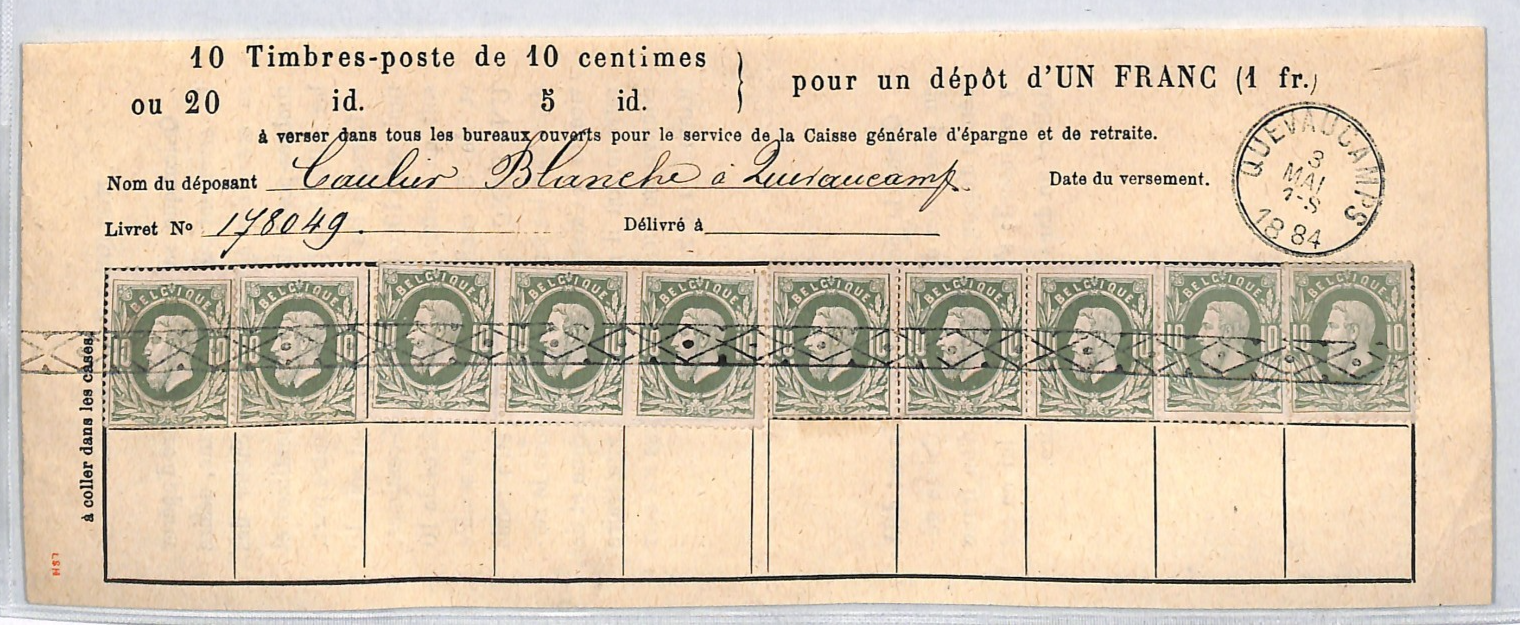 10 Timbres-poste de 10 centimes
ou 20 id. 5 id.
pour un dépôt d'UN FRANC (1 fr.)
à verser dans tous les bureaux ouverts pour le service de la Caisse générale d'épargne et de retraite.
Nom du déposant Caulier Blanche à Quevaucamp
Date du versement.
QUEVAUCAMPS
3
MAI
7-S
1884
Livret No 178049.
Délivré à
à coller dans les cases.
BELGIQUE BELGIQUE BELGIQUE BELGIQUE BELGIQUE BELGIQUE BELGIQUE BELGIQUE BELGIQUE BELGIQUE
10 10 10 10 10 10 10 10 10 10
LSH